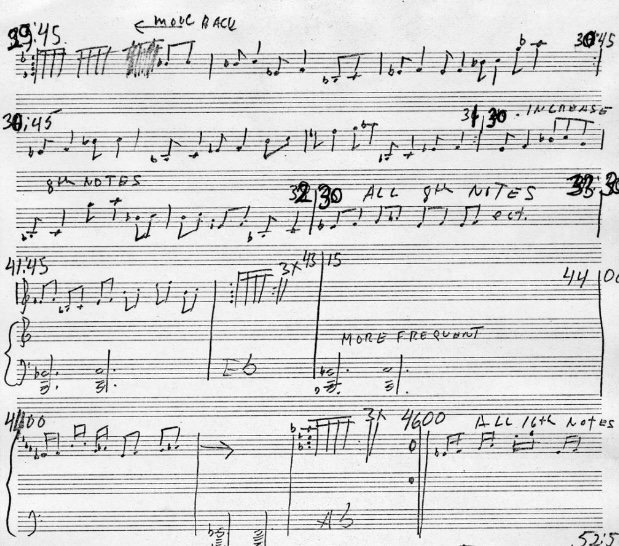 29:45 ← MOVE BACK 30:45
30:45 31 30 · INCREASE
8th NOTES 32 30 ALL 8th NOTES ect.
41:45 3X 43 15 44 00
MORE FREQUENT
Eb
3X 4600 ALL 16th NOTES
Ab